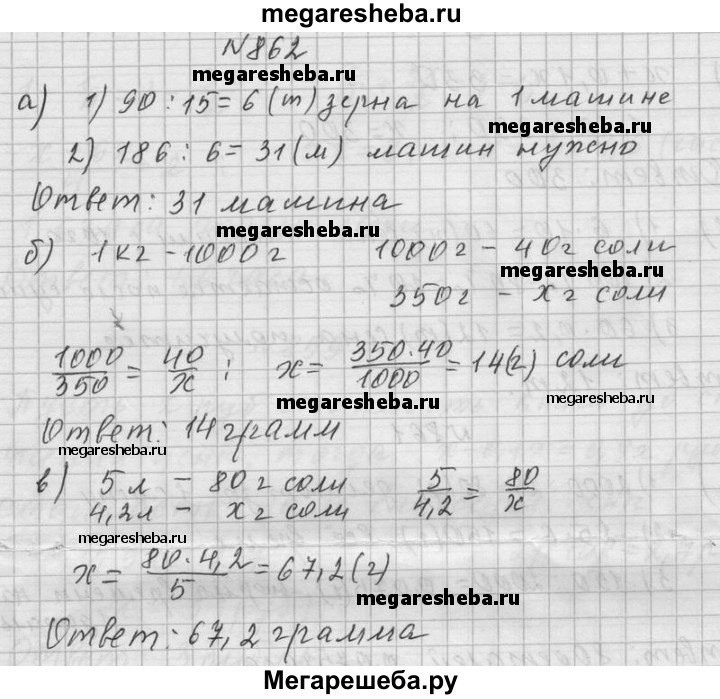 megaresheba.ru
N862
megaresheba.ru
а) 1) 90 : 15 = 6 (т) зерна на 1 машине
megaresheba.ru
2) 186 : 6 = 31 (м) машин нужно
Ответ: 31 машина
megaresheba.ru
б) 1 кг - 1000 г 1000 г - 40 г соли
megaresheba.ru
350 г - х г соли
1000/350 = 40/х ; х = 350·40/1000 = 14 (г) соли
megaresheba.ru megaresheba.ru
Ответ: 14 грамм
megaresheba.ru
в) 5 л - 80 г соли 5/4,2 = 80/х
4,2 л - х г соли
megaresheba.ru
х = 80·4,2/5 = 67,2 (г)
megaresheba.ru
Ответ: 67,2 грамма
Мегарешеба.ру